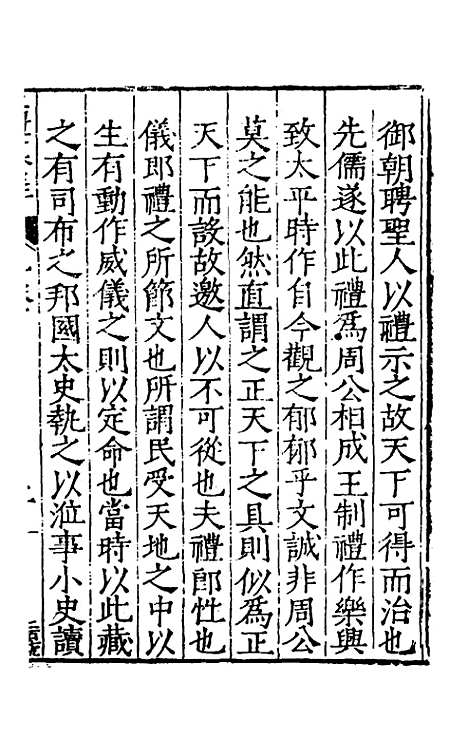 御朝聘聖人以禮示之故天下可得而治也
先儒遂以此禮爲周公相成王制禮作樂興
致太平時作自今觀之郁郁乎文誠非周公
莫之能也然直謂之正天下之具則似爲正
天下而設故邀人以不可從也夫禮卽性也
儀卽禮之所節文也所謂民受天地之中以
生有動作威儀之則以定命也當時以此藏
之有司布之邦國太史執之以涖事小史讀